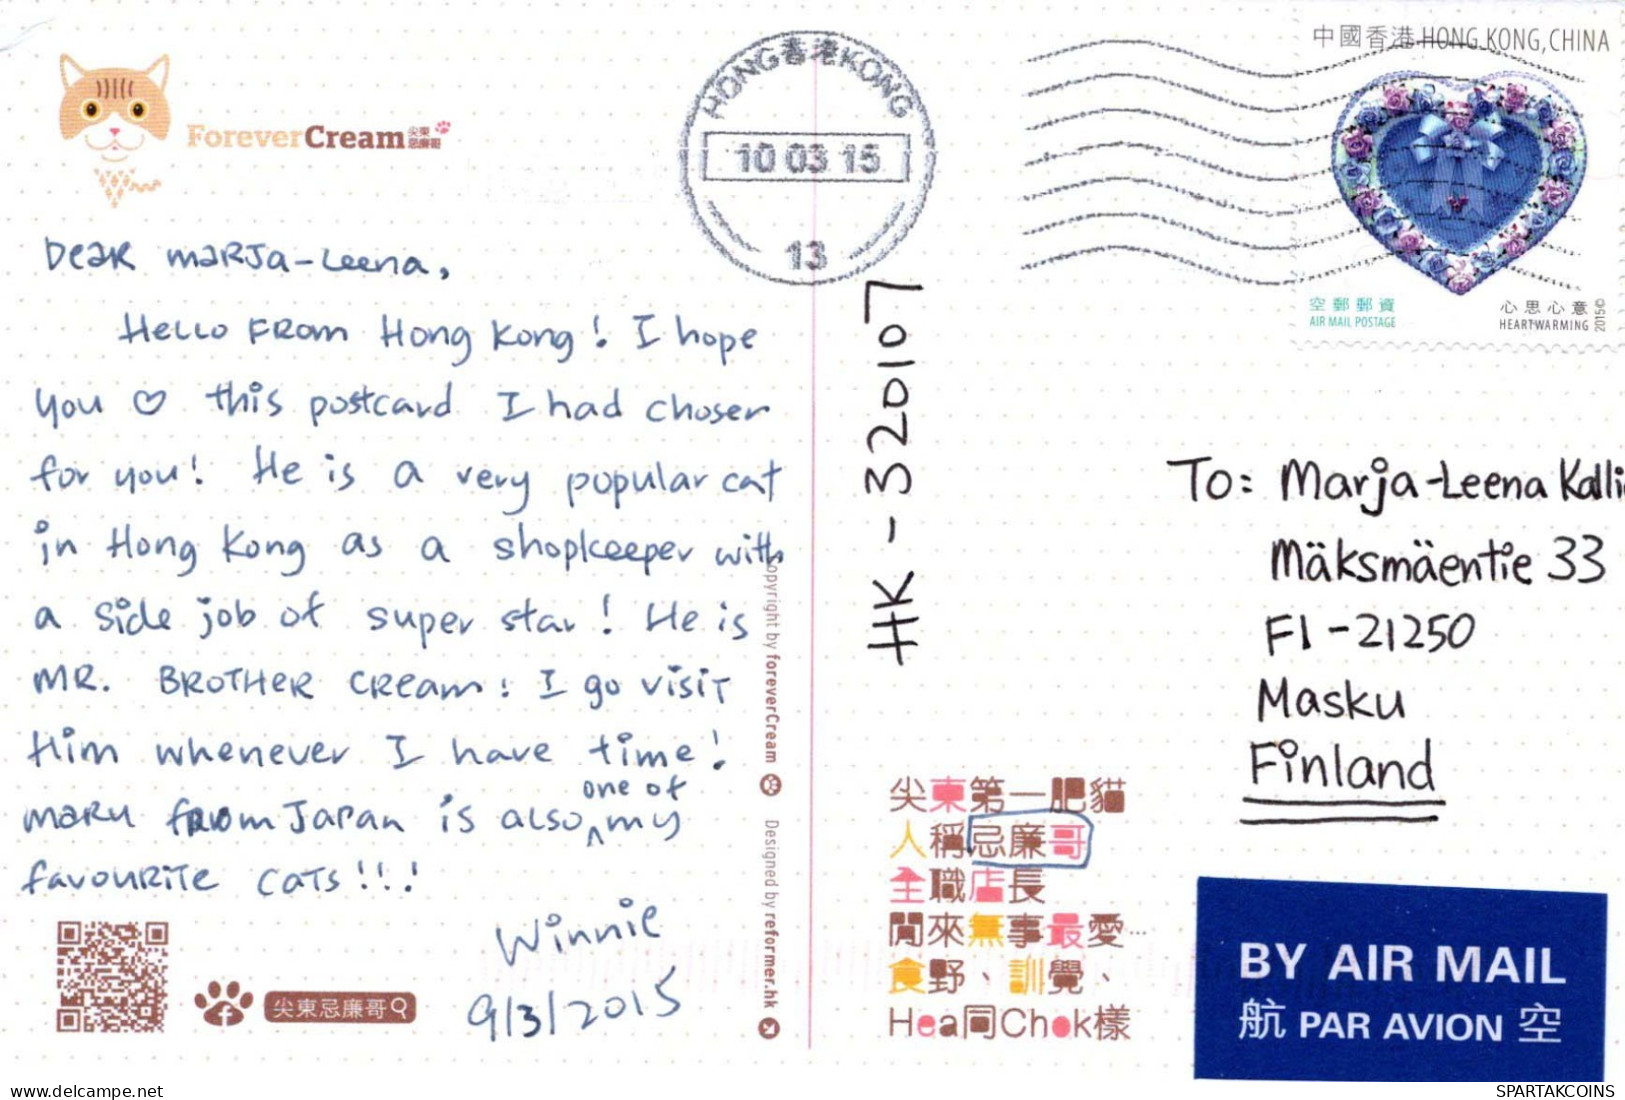 ForeverCream 尖東忌廉哥
HONG香港KONG
10 03 15
13
中國香港 HONG KONG, CHINA
空郵郵資
AIR MAIL POSTAGE
心思心意
HEARTWARMING
2015©
Dear Marja-Leena,
Hello from Hong Kong! I hope
you ♡ this postcard I had chosen
for you! He is a very popular cat
in Hong Kong as a shopkeeper with
a side job of super star! He is
MR. BROTHER CREAM! I go visit
him whenever I have time!
Maru from Japan is also one of my
favourite cats!!!
Winnie
9/3/2015
尖東忌廉哥
Copyright by foreverCream
Designed by reformer.hk
HK-320107
To: Marja-Leena Kalli
Mäksmäentie 33
FI-21250
Masku
Finland
尖東第一肥貓
人稱忌廉哥
全職店長
閒來無事最愛…
食野、訓覺、
Hea同Chok樣
BY AIR MAIL
航 PAR AVION 空
SPARTAKCOINS